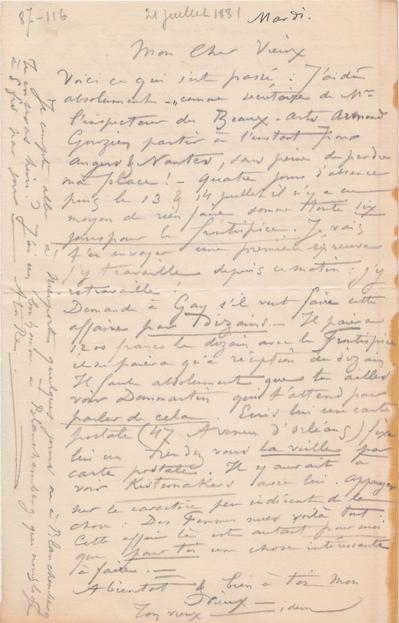 87-116
21 juillet 1881
Mardi.
Mon Cher Vieux
Voici ce qui s'est passé : J'ai dû
absolument - comme secrétaire de Mr
l'inspecteur des Beaux-Arts Armand
Gouzien partir à l'instant pour
Angers & Nantes, sous peine de perdre
ma place ! - Quatre jours d'absence
puis le 13 & 14 juillet il n'y a eu
moyen de rien faire somme toute six
jours pour le frontispice. Je vais
t'en envoyer une première épreuve
j'y travaille depuis ce matin : j'y
retravaille !
Demande à Gay s'il veut faire cette
affaire par Dizains - Il paiera
1200 francs le dizain avec le Frontispice
il ne paiera qu'à réception du dizain
Il faut absolument que tu ailles
voir Dommartin qui t'attend pour
parler de cela. Ecris lui une carte
postale (47 Avenue d'Orléans) fixe
lui un rendez vous la veille par
carte postale. Il y aurait à
voir Kistemaeckers
sur le caractère peu indécent de la
chose : Des Femmes nues voilà tout
Cette affaire là est autant pour moi
que pour toi une chose intéressante
à faire.
A bientôt & bien à toi mon
Vieux
Ton vieux - idem
Je compte aller à
quelques jours ou à Blanckenberg